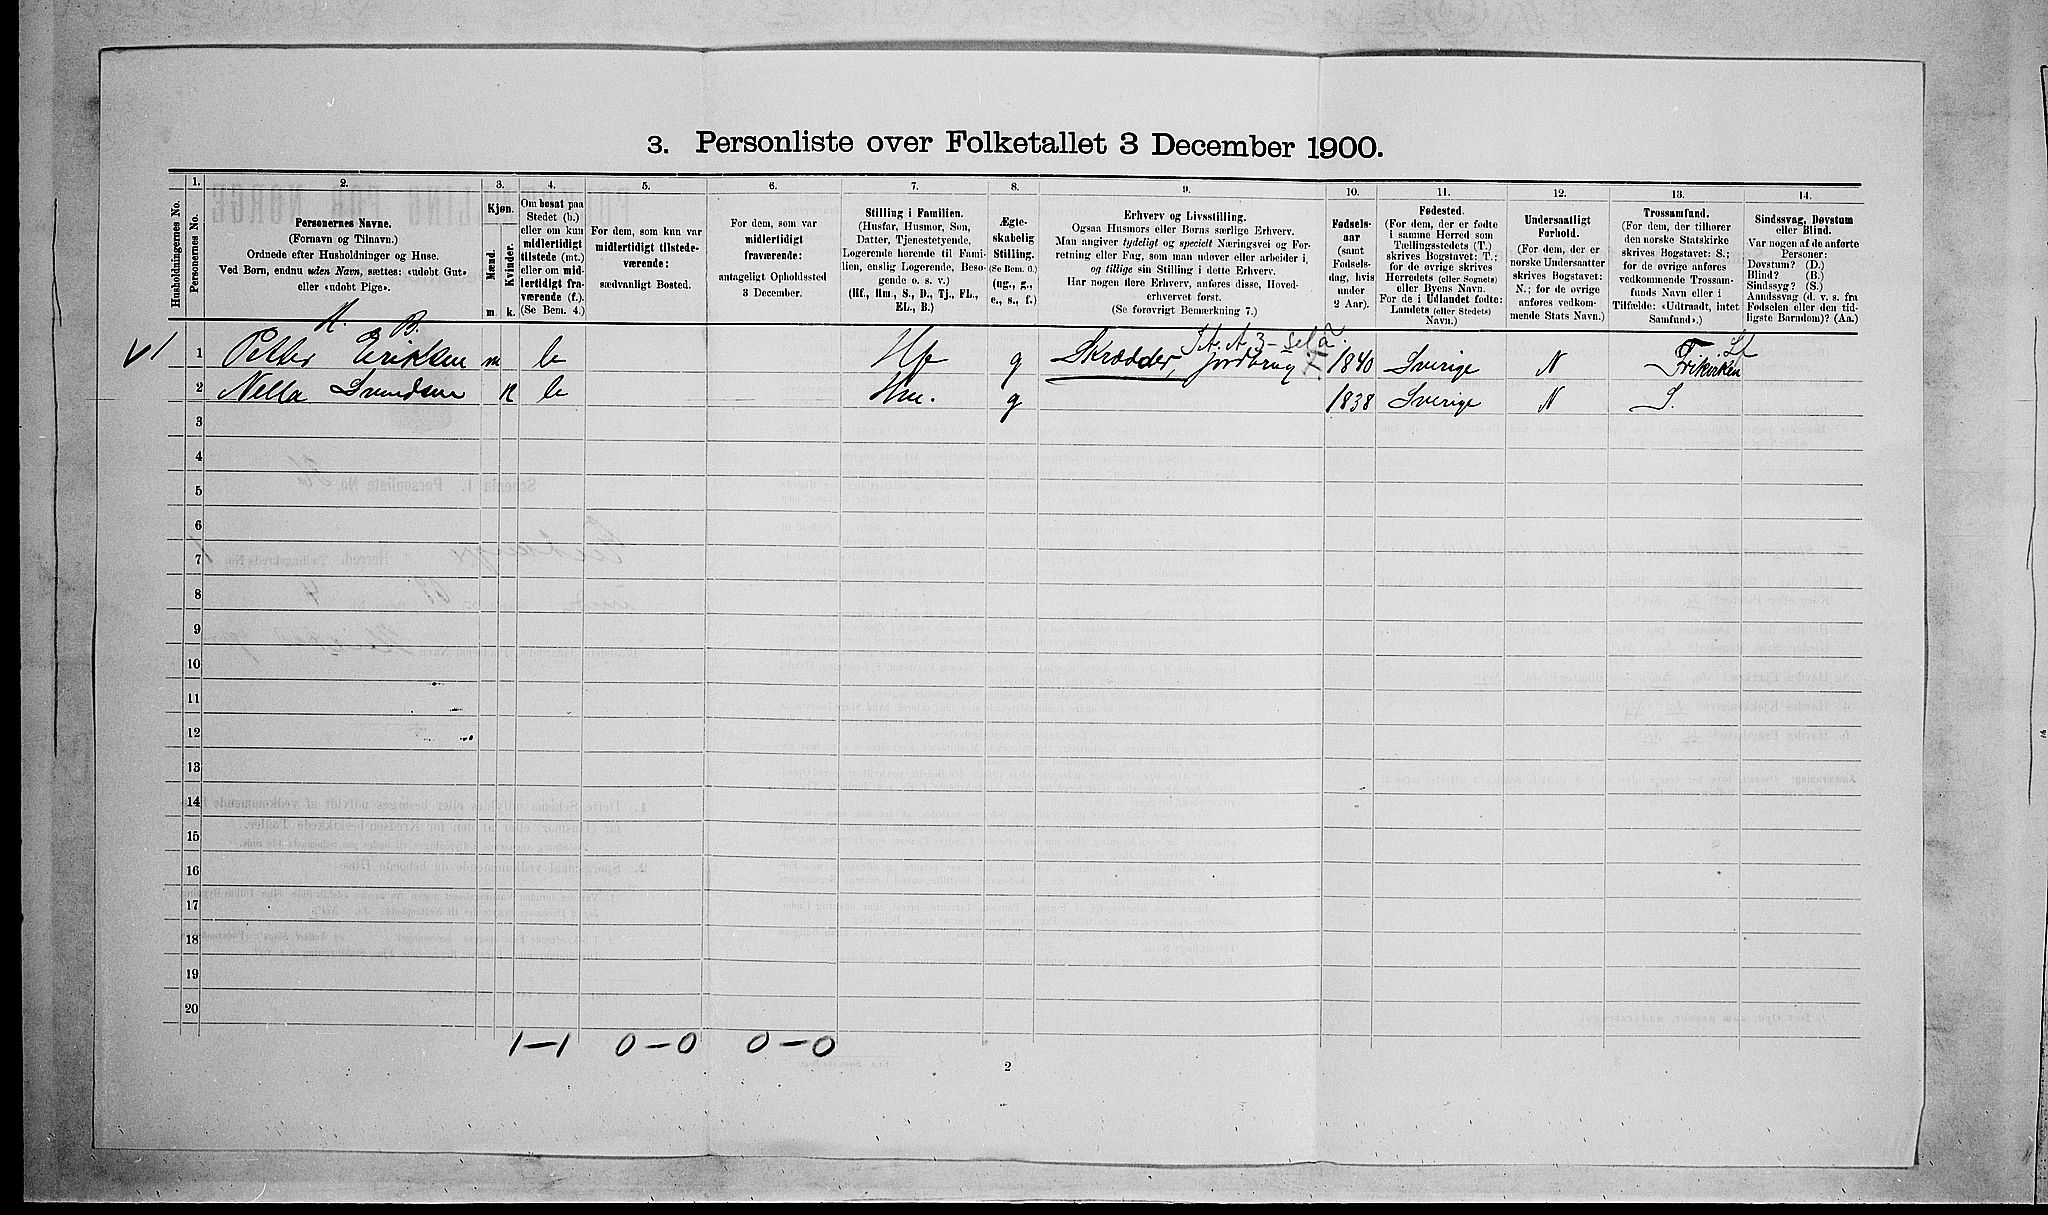 3. Personliste over Folketallet 3 December 1900.
1.
Husholdningernes No.
Personernes No.
2.
Personernes Navne.
(Fornavn og Tilnavn.)
Ordnede efter Husholdninger og Huse.
Ved Børn, endnu uden Navn, sættes: «udøbt Gut»
eller «udøbt Pige».
3.
Kjøn.
Mænd.
Kvinder.
m. k.
4.
Om bosat paa
Stedet (b.)
eller om kun
midlertidigt
tilstede (mt.)
eller om mid-
lertidigt fra-
værende (f.).
(Se Bem. 4.)
5.
For dem, som kun var
midlertidigt tilstede-
værende:
sædvanligt Bosted.
6.
For dem, som var
midlertidigt
fraværende:
antageligt Opholdssted
3 December.
7.
Stilling i Familien.
(Husfar, Husmor, Søn,
Datter, Tjenestetyende,
Logerende hørende til Fami-
lien, enslig Logerende, Besø-
gende o. s. v.)
(Hf., Hm., S., D., Tj., FL.,
EL., B.)
8.
Ægte-
skabelig
Stilling.
(Se Bem. 6.)
(ug., g.,
e., s., f.)
9.
Erhverv og Livsstilling.
Ogsaa Husmors eller Børns særlige Erhverv.
Man angiver tydeligt og specielt Næringsvei og For-
retning eller Fag, som man udøver eller arbeider i,
og tillige sin Stilling i dette Erhverv.
Har nogen flere Erhverv, anføres disse, Hoved-
erhvervet først.
(Se forøvrigt Bemærkning 7.)
10.
Fødsels-
aar
(samt
Fødsels-
dag, hvis
under
2 Aar).
11.
Fødested.
(For dem, der er fødte
i samme Herred som
Tællingsstedets (T.)
skrives Bogstavet: T.;
for de øvrige skrives
Herredets (eller Sognets)
eller Byens Navn.
For de i Udlandet fødte:
Landets (eller Stedets)
Navn.)
12.
Undersaatligt
Forhold.
(For dem, der er
norske Undersaatter
skrives Bogstavet:
N.; for de øvrige
anføres vedkom-
mende Stats Navn.)
13.
Trossamfund.
(For dem, der tilhører
den norske Statskirke
skrives Bogstavet: S.;
for de øvrige anføres
vedkommende Trossam-
funds Navn eller i
Tilfælde: «Udtraadt, intet
Samfund».)
14.
Sindssvag, Døvstum
eller Blind.
Var nogen af de anførte
Personer:
Døvstum? (D.)
Blind? (B.)
Sindssyg? (S.)
Aandssvag (d. v. s. fra
Fødselen eller den tid-
ligste Barndom)? (Aa.)
V 1 1 Petter Eriksen m b Hf g Skrædder, jordbrug 1840 Sverige N Frikirken
2 Nella Svendsen k b Hm. g 1838 Sverige N S.
3
4
5
6
7
8
9
10
11
12
13
14
15
16
17
18
19
20
1-1 0-0 0-0
2